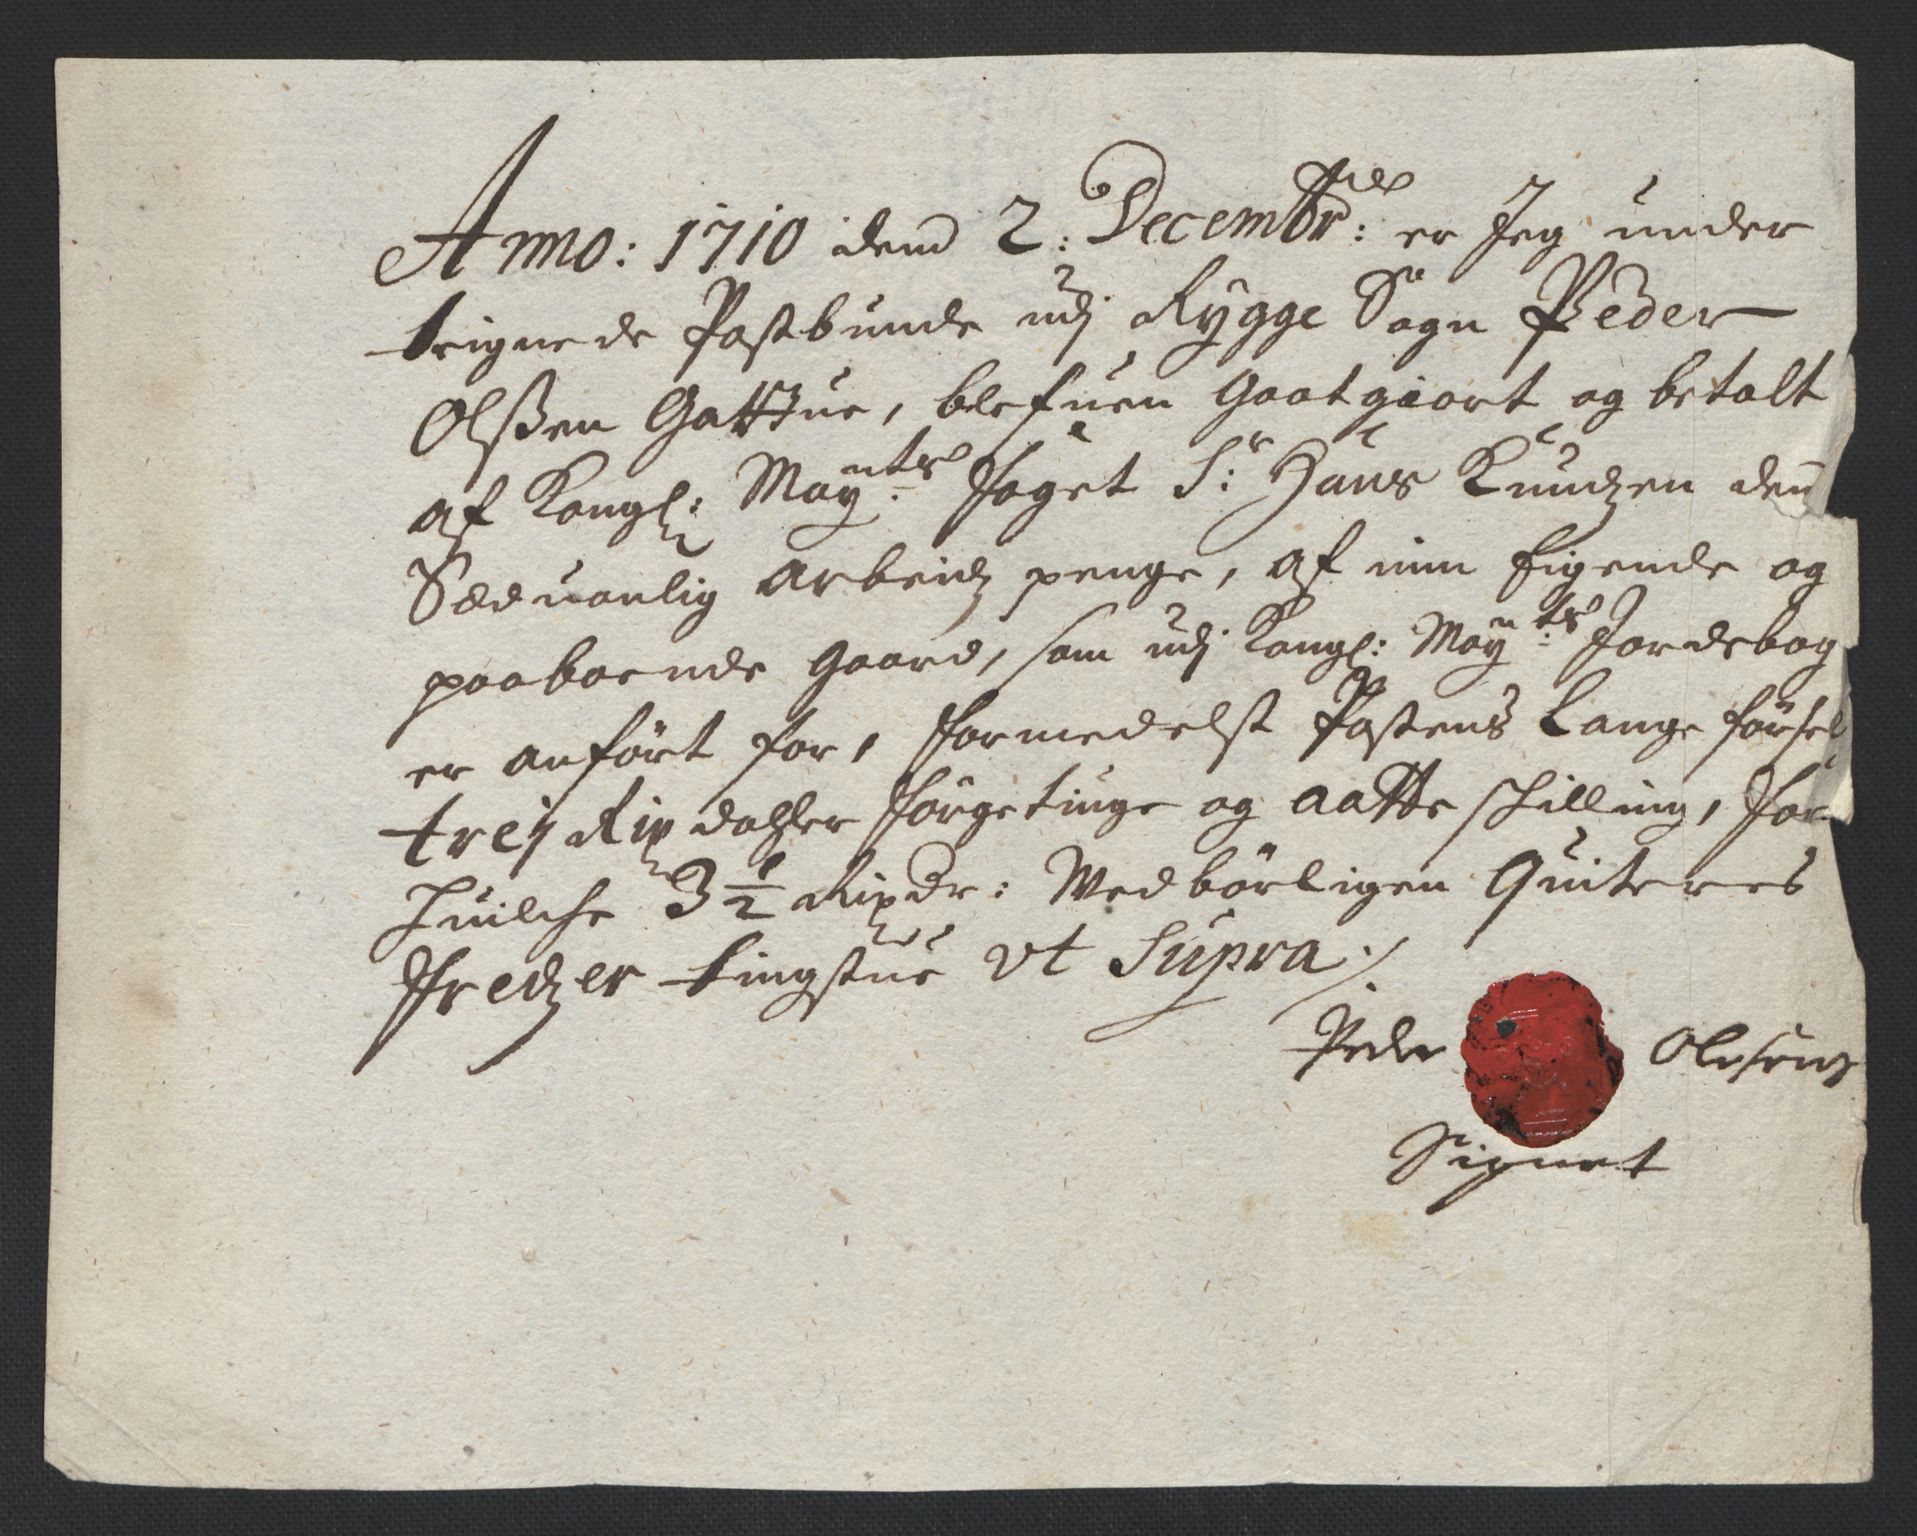 Anno: 1710 dend 2: Decembr: er Jeg under
teignede Postbunde udj Rygge Sogn Peder
Olßen Gattue, blefuen Gaatgiort og betalt
af Kongl: May:ntz foget Sr: Hans Knudzen den
Sæduanlig arbeidz penge, af min Eigende og
paaboende Gaard, som udj Kongl: May:ntz Jordebog
er anført for, formedelst Postens Lange førsel
trej Rix daller førgetiuge og aatte skilling, for
huilche 3 1/2 Rixdr: Wedbørligen Quiteres
Fredzer tingstue vt Supra ./.
Peder Olesens
Signet